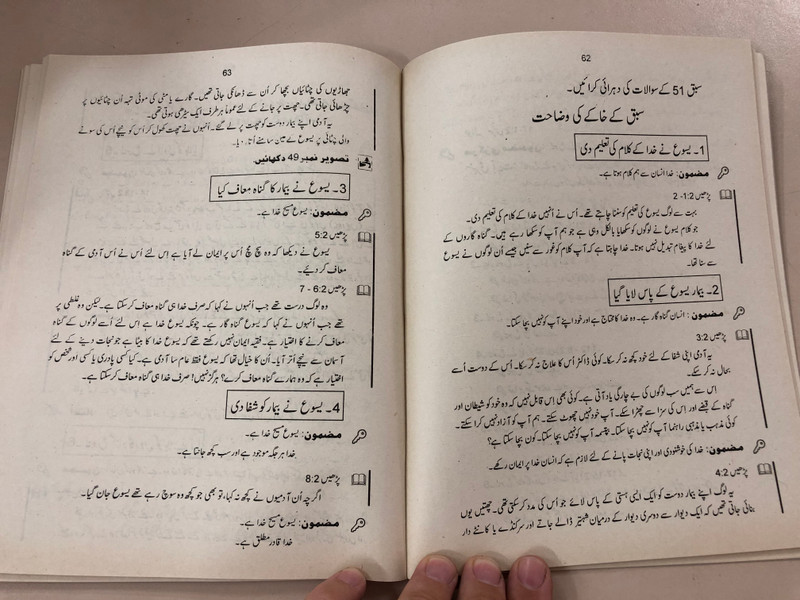 62
سبق 51 کے سوالات کی دہرائی کرائیں۔
سبق کے خاکے کی وضاحت
1۔ یسوع نے خدا کے کلام کی تعلیم دی
مضمون: خدا انسان سے ہم کلام ہوتا ہے۔
پڑھیں 2:2-1
بہت سے لوگ یسوع کی تعلیم کو سننا چاہتے تھے۔ اُس نے اُنہیں خدا کے کلام کی تعلیم دی۔
جو کلام یسوع نے لوگوں کو سکھایا بالکل وہی ہے جو ہم آپ کو سکھا رہے ہیں۔ گناہ گاروں کے
لئے خدا کا پیغام تبدیل نہیں ہوتا۔ خدا چاہتا ہے کہ آپ کلام کو غور سے سنیں جیسے اُن لوگوں نے یسوع
سے سنا تھا۔
2۔ بیمار یسوع کے پاس لایا گیا
مضمون: انسان گناہ گار ہے۔ وہ خدا کا محتاج ہے اور خود اپنے آپ کو نہیں بچا سکتا۔
پڑھیں 3:2
یہ آدمی اپنی شفا کے لئے خود کچھ نہ کر سکا۔ کوئی ڈاکٹر اُس کا علاج نہ کر سکا۔ اُس کے دوست اُسے
بحال نہ کر سکے۔
اِس سے ہمیں سب لوگوں کی بے چارگی یاد آتی ہے۔ کوئی بھی اِس قابل نہیں کہ وہ خود کو شیطان اور
گناہ کے قبضے اور اس کی سزا سے چھڑا سکے۔ آپ خود نہیں چھوٹ سکتے۔ ہم آپ کو آزاد نہیں کرا سکتے۔
کوئی مذہب یا مذہبی راہنما آپ کو نہیں بچا سکتا۔ بپتسمہ آپ کو نہیں بچا سکتا۔ کون بچا سکتا ہے؟
مضمون: خدا کی خوشنودی اور اپنی نجات پانے کے لئے لازم ہے کہ انسان خدا پر ایمان رکھے۔
پڑھیں 4:2
یہ لوگ اپنے بیمار دوست کو ایک ایسی ہستی کے پاس لائے جو اُس کی مدد کر سکتی تھی۔ چھتیں یوں
بنائی جاتی تھیں کہ ایک دیوار سے دوسری دیوار کے درمیان شہتیر ڈالے جاتے اور سرکنڈے یا کانٹے دار
63
جھاڑیوں کی چٹائیاں بچھا کر اُن سے ڈھانکی جاتی تھیں۔ گارے یا مٹی کی موٹی تہہ اُن چٹائیوں پر
چڑھائی جاتی تھی۔ چھت پر جانے کے لئے عموماً ہر طرف ایک سیڑھی ہوتی تھی۔
یہ آدمی اپنے بیمار دوست کو چھت پر لے گئے۔ اُنہوں نے چھت کھول کر اُس کو نیچے اُس کی سونے
والی چٹائی پر یسوع کے عین سامنے اُتار دیا۔
تصویر نمبر 49 دکھائیں۔
3۔ یسوع نے بیمار کا گناہ معاف کیا
مضمون: یسوع مسیح خدا ہے۔
پڑھیں 5:2
یسوع نے دیکھا کہ وہ سچ مچ اُس پر ایمان لے آیا ہے اِس لئے اُس نے اُس آدمی کے گناہ
معاف کر دیئے۔
پڑھیں 6:2 - 7
وہ لوگ درست تھے جب اُنہوں نے کہا کہ صرف خدا ہی گناہ معاف کر سکتا ہے۔ لیکن وہ غلطی پر
تھے جب اُنہوں نے کہا کہ یسوع گناہ گار ہے۔ چونکہ یسوع خدا ہے اس لئے اُسے لوگوں کے گناہ
معاف کرنے کا اختیار ہے۔ فقیہ ایمان نہیں رکھتے تھے کہ یسوع خدا کا بیٹا ہے جو نجات دینے کے لئے
آسمان سے نیچے اُتر آیا۔ اُن کا خیال تھا کہ یسوع فقط عام سا آدمی ہے۔ کیا کسی پادری یا کسی اور شخص کو
اختیار ہے کہ وہ ہمارے گناہ معاف کرے؟ ہرگز نہیں! صرف خدا ہی گناہ معاف کر سکتا ہے۔
4۔ یسوع نے بیمار کو شفا دی
مضمون: یسوع مسیح خدا ہے۔
خدا ہر جگہ موجود ہے اور سب کچھ جانتا ہے۔
پڑھیں 8:2
اگرچہ اُن آدمیوں نے کچھ نہ کہا، تو بھی جو کچھ وہ سوچ رہے تھے یسوع جان گیا۔
مضمون: یسوع مسیح خدا ہے۔
خدا قادرِ مطلق ہے۔